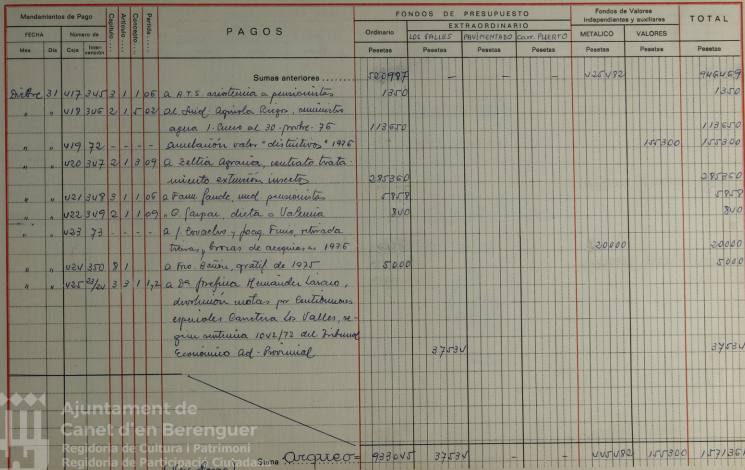 Mandamientos de Pago
FECHA Número de
Mes Día Caja Intervención
Capítulo Artículo Concepto Partida
PAGOS
FONDOS DE PRESUPUESTO
Ordinario EXTRAORDINARIO
LOS VALLES PAVIMENTADO CAM. PUERTO
Fondos de Valores
Independientes y auxiliares
METALICO VALORES
TOTAL
Pesetas Pesetas Pesetas Pesetas Pesetas Pesetas Pesetas
Sumas anteriores 520987 - - - 425482 946469
Dicbre 31 417 345 3 1 1 06 a A.T.S. asistencia a pensionistas 1350 1350
" " 418 346 2 1 5 02 al Sind Agrícola Riegos, suministro
agua 1-Enero al 30-novbre-76 113650 113650
" " 419 72 - - - - anulación valor "distintivos" 1976 155300 155300
" " 420 347 2 1 3 09 a Zeltia Agraria, contrato trata-
miento extinción insectos 285360 285360
" " 421 348 3 1 1 06 a Farm. med pensionistas 5858 5858
" " 422 349 2 1 1 09 " dieta a Valencia 840 840
" " 423 73 - - - - a retirada
brozas de acequias 1976 20000 20000
" " 424 350 8 1 a Fco gratif de 1975 5000 5000
" " 425 23/24 3 3 1 1,2 a Dª Josefina Hernández Lázaro,
devolución cuotas por Contribuciones
especiales Carretera Los Valles, se-
gún sentencia 1042/72 del Tribunal
Económico Ad-Provincial 37534 37534
Suma Arqueo = 933045 37534 - - 445482 155300 1571361
Ajuntament de
Canet d'en Berenguer
Regidoria de Cultura i Patrimoni
Regidoria de Participació Ciutadana